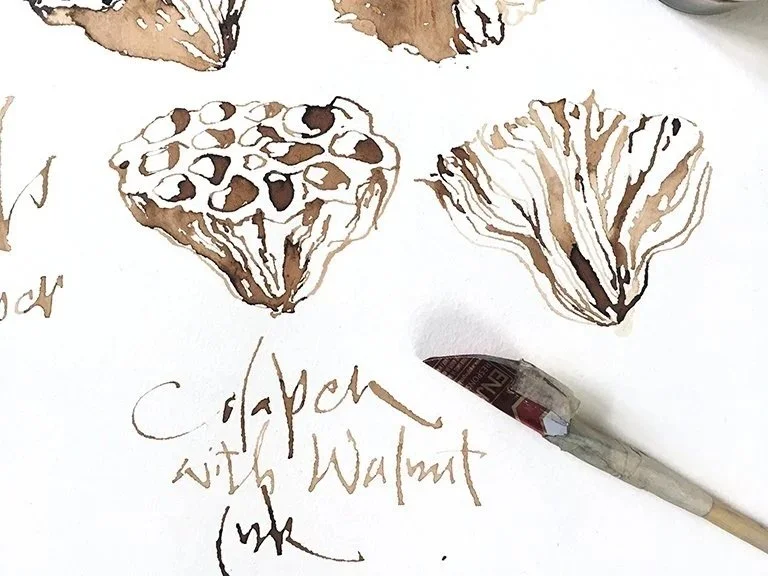 Colapen
with Walnut
ink
ENJ